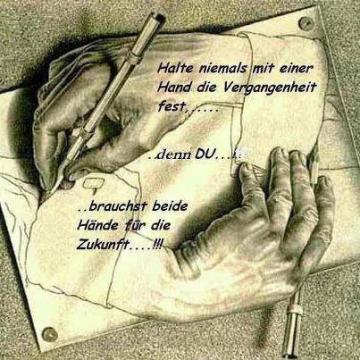 Halte niemals mit einer
Hand die Vergangenheit
fest,.....
..denn DU...!!
..brauchst beide
Hände für die
Zukunft....!!!